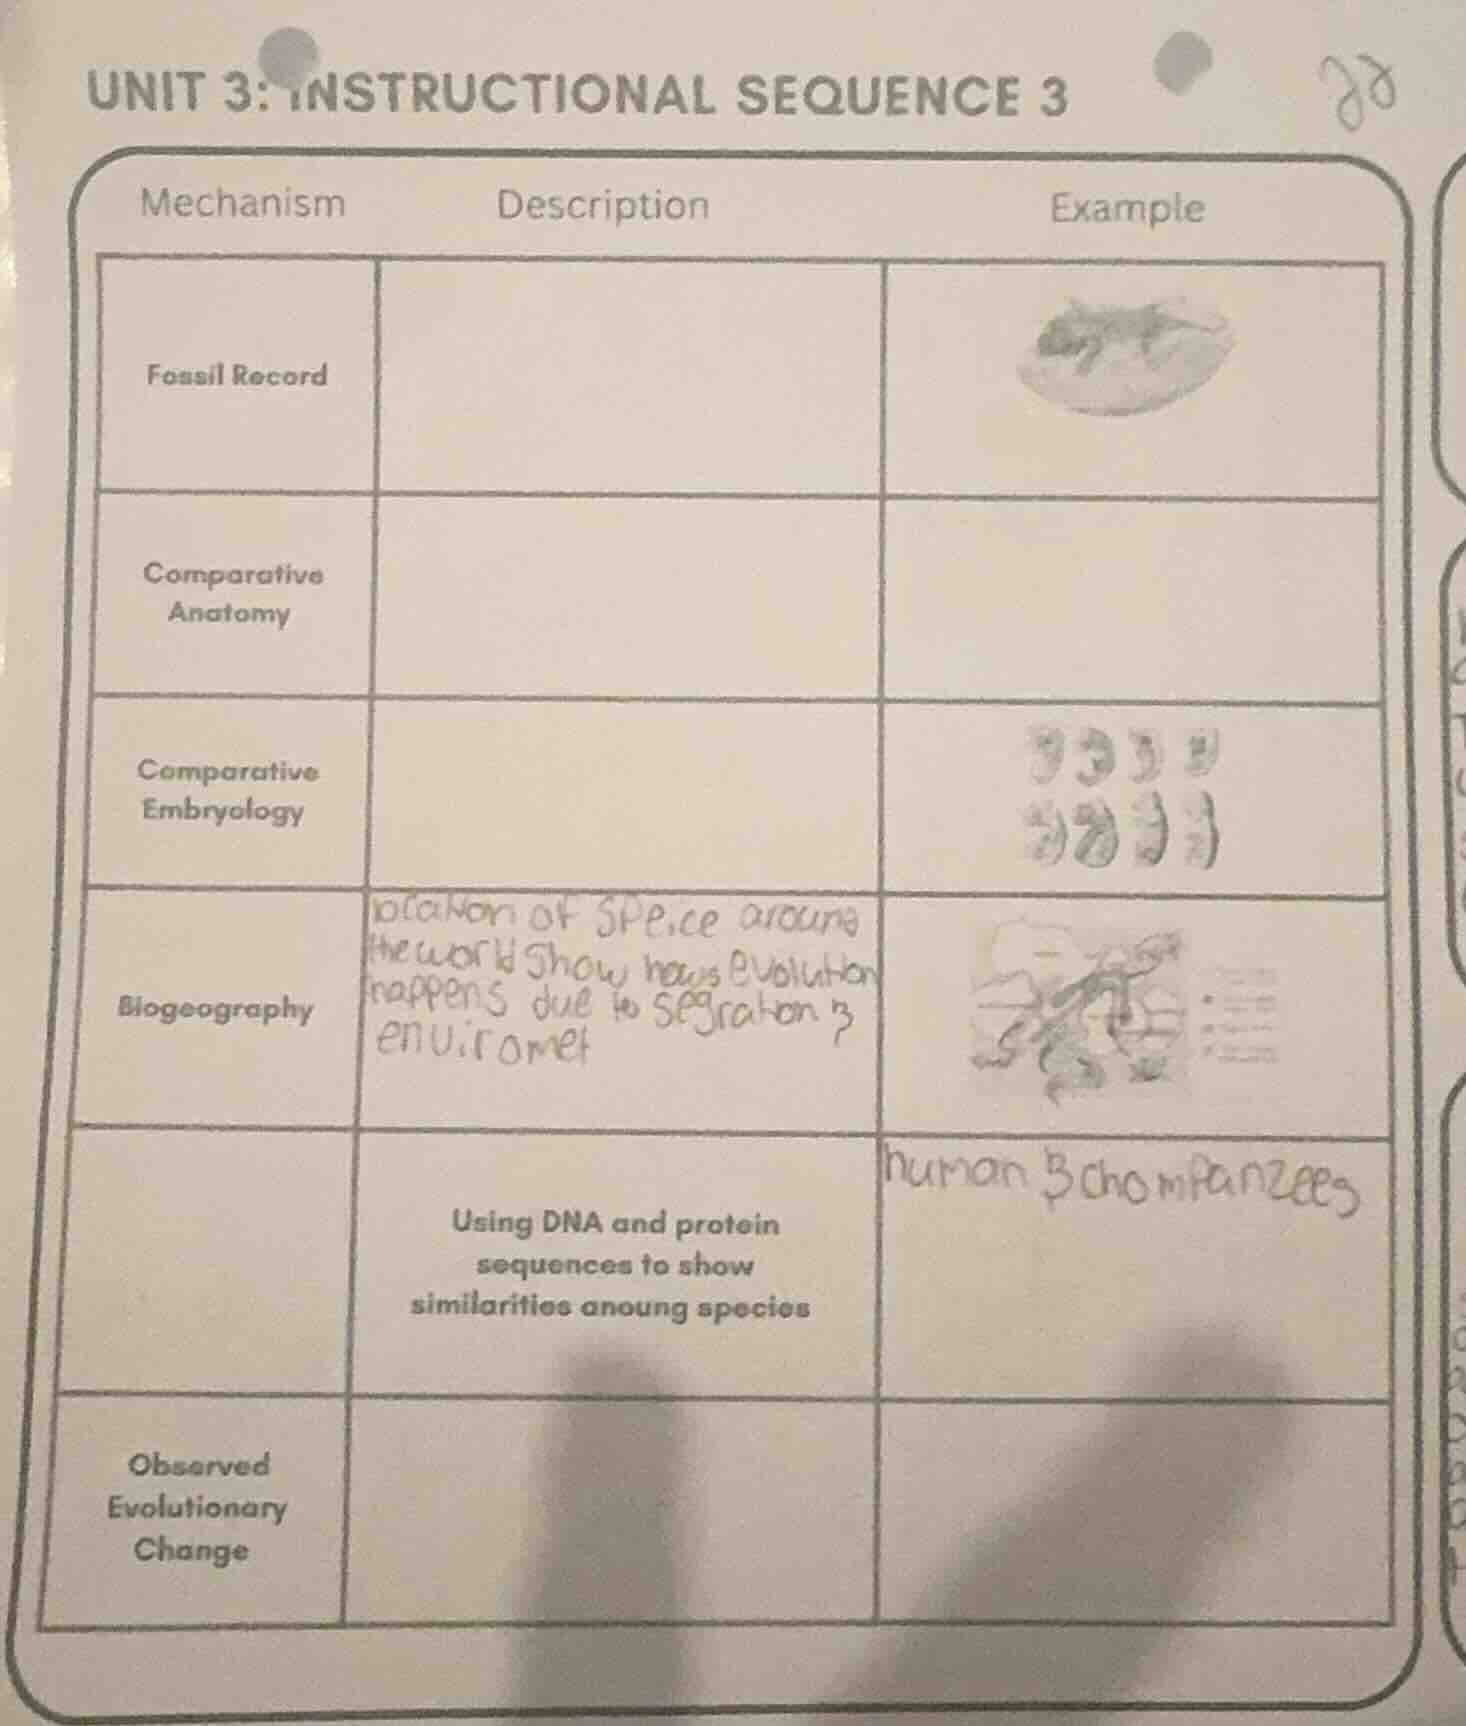 UNIT 3: INSTRUCTIONAL SEQUENCE 3
Mechanism Description Example
Fossil Record
Comparative
Anatomy
Comparative
Embryology
Biogeography
location of Speice around
the world show hows evolution
happens due to segration &
enviromet
Using DNA and protein
sequences to show
similarities anoung species
human & chompanzees
Observed
Evolutionary
Change